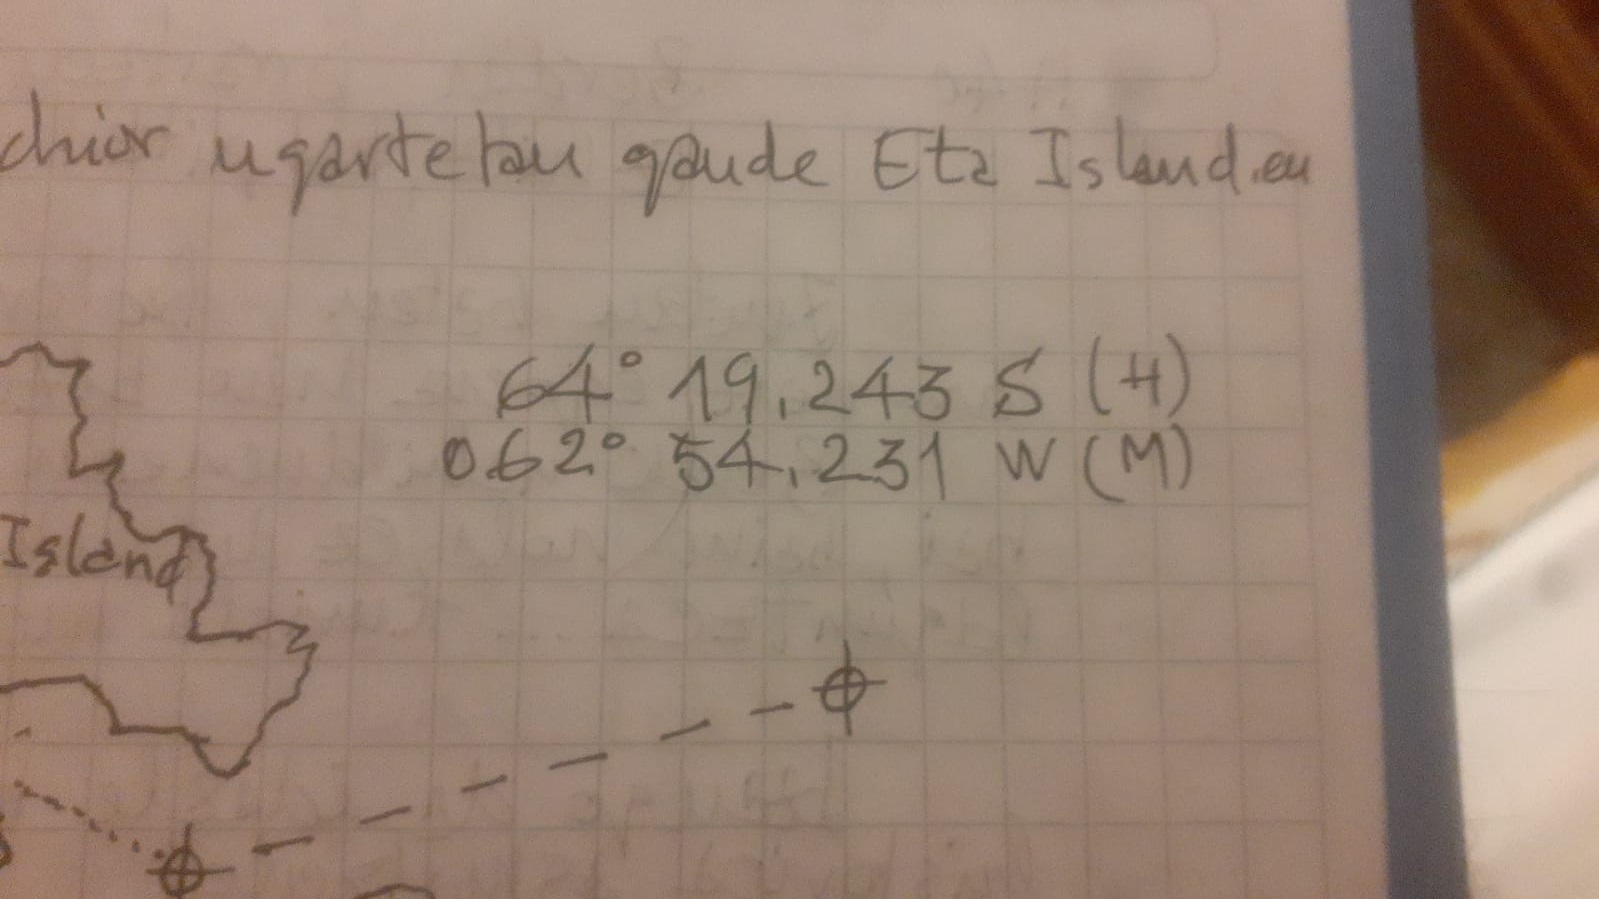 chior ugartetan gaude Eta Island.en
64° 19,243 S (H)
062° 54,231 W (M)
Island